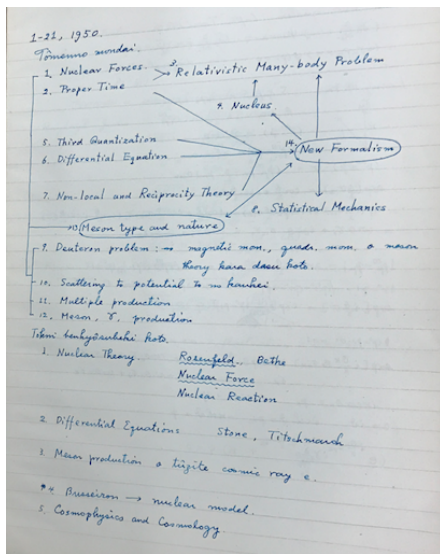 1-21, 1950.
Tōmenno mondai.
1. Nuclear Forces.
3. Relativistic Many-body Problem
2. Proper Time
4. Nucleus
5. Third Quantization
14. New Formalism
6. Differential Equation
7. Non-local and Reciprocity Theory
8. Statistical Mechanics
Meson type and nature
9. Deuteron problem : magnetic mom., quadr. mom. o meson
theory kara dasu koto.
10. Scattering to potential to no kankei.
11. Multiple production
12. Meson, γ, production
benkyōsubeki koto.
1. Nuclear Theory. Rosenfeld, Bethe
Nuclear Force
Nuclear Reaction
2. Differential Equations Stone, Titschmarch
3. Meson production o tūzite cosmic ray e.
4. Busseiron → nuclear model.
5. Cosmophysics and Cosmology.